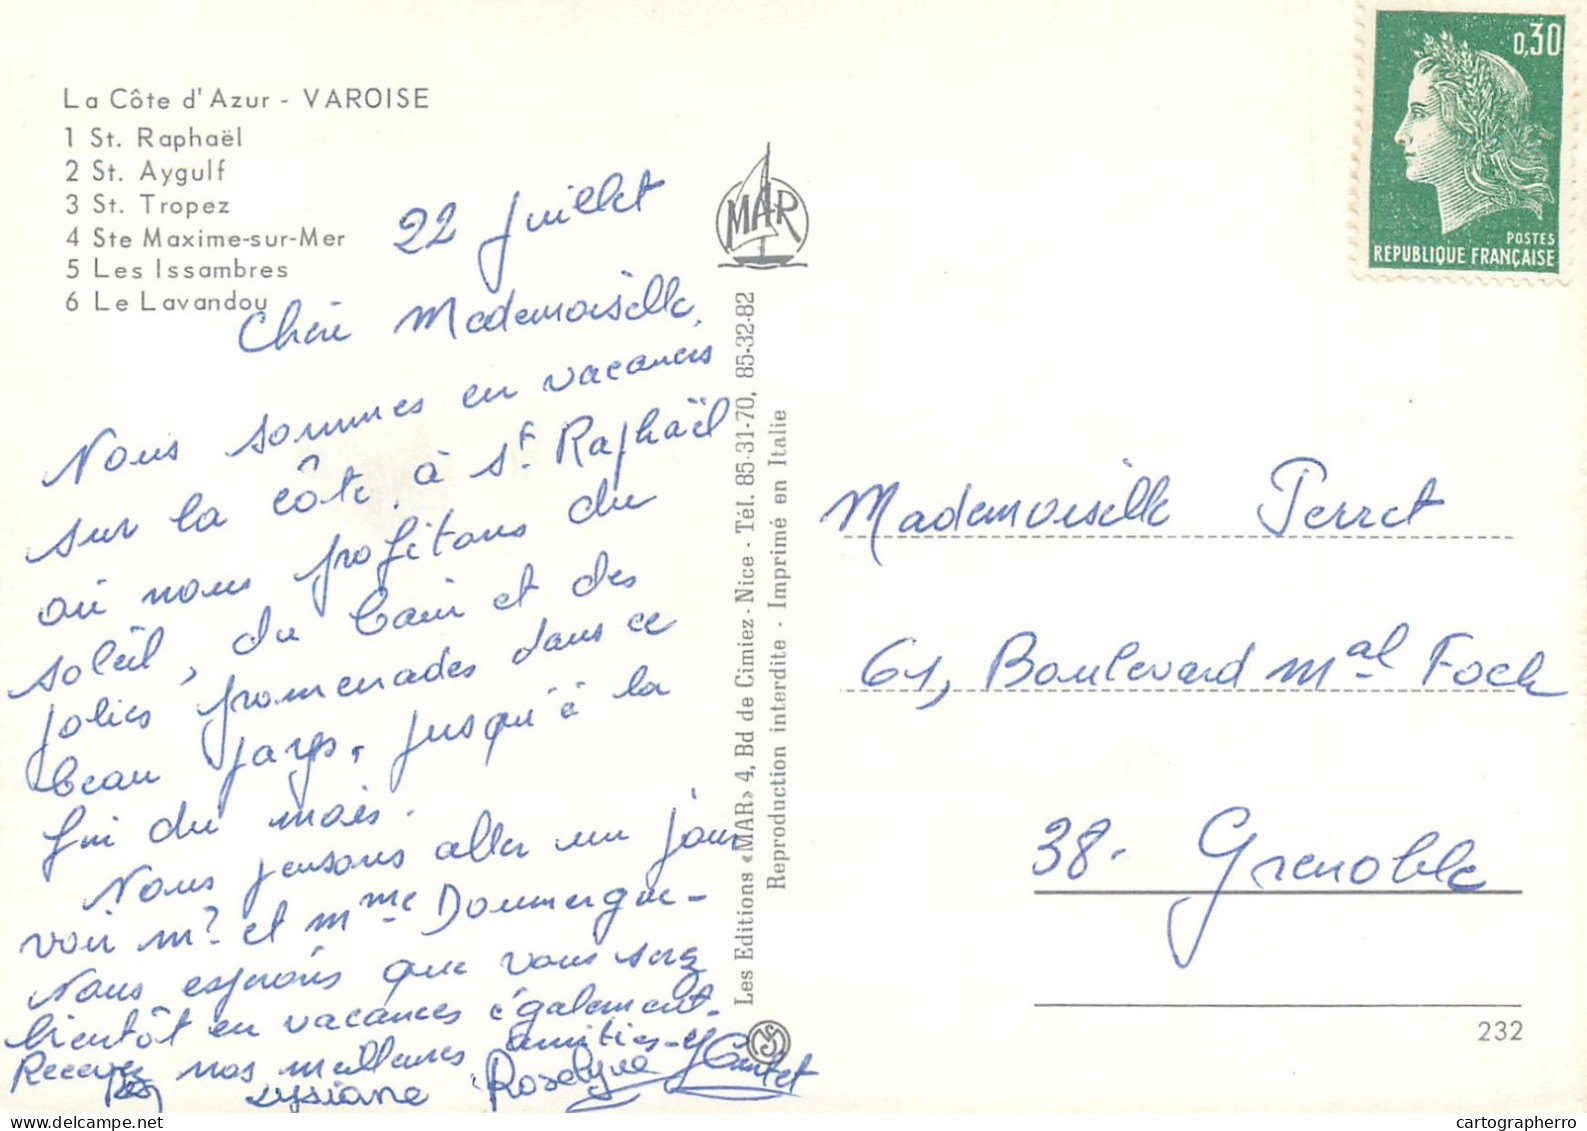 La Côte d'Azur - VAROISE
1 St. Raphaël
2 St. Aygulf
3 St. Tropez
4 Ste Maxime-sur-Mer
5 Les Issambres
6 Le Lavandou
22 Juillet
Chère Mademoiselle,
Nous sommes en vacances
sur la côte, à St. Raphaël
où nous profitons du
soleil, du bain et des
jolies promenades dans ce
beau pays, jusqu'à la
fin du mois.
Nous pensons aller un jour
voir Mr. et Mme Doumergue -
Nous espérons que vous serez
bientôt en vacances également.
Recevez nos meilleures amitiés -
Lysiane Roselyne
MAR
Les Editions «MAR» 4, Bd de Cimiez - Nice - Tél. 85-31-70, 85-32-82
Reproduction interdite - Imprimé en Italie
0,30
POSTES
REPUBLIQUE FRANÇAISE
Mademoiselle Perret
61, Boulevard Mal Foch
38. Grenoble
232
delcampe.net
cartographerro